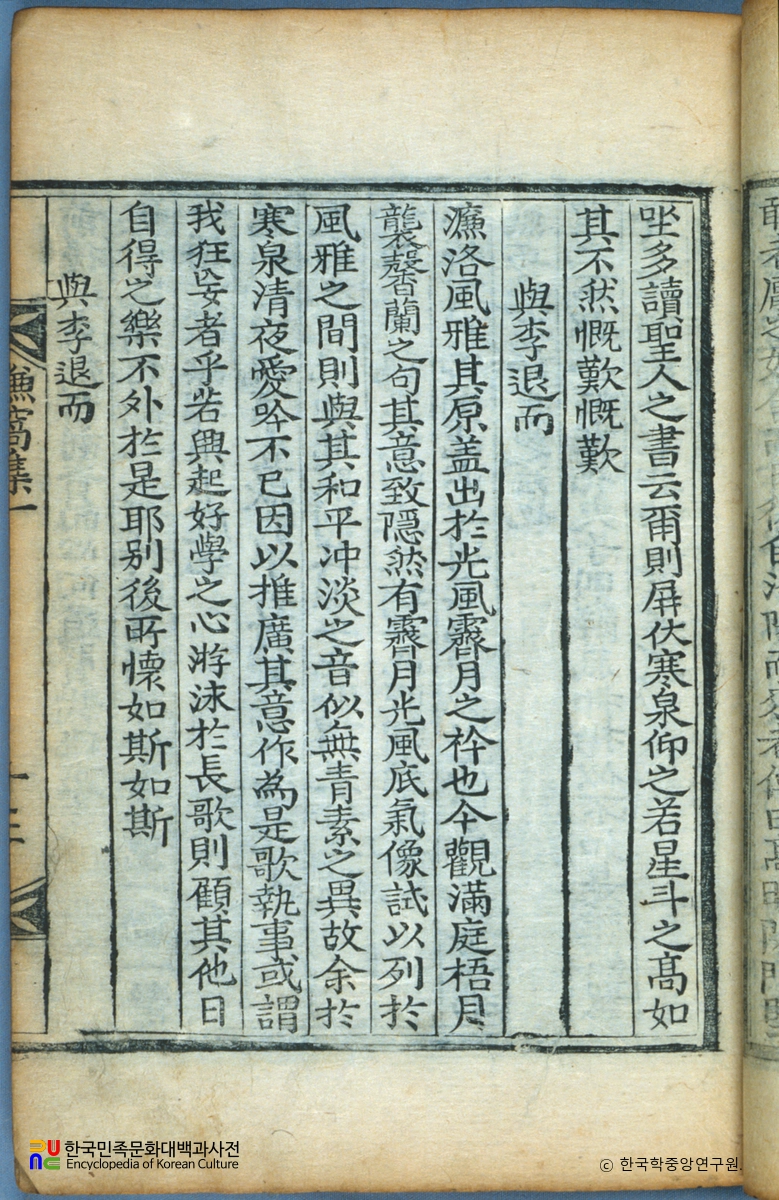 坐多讀聖人之書云爾則屛伏寒泉仰之若星斗之高如
其不然慨歎慨歎
與李退而
濂洛風雅其原盖出於光風霽月之衿也今觀滿庭梧月
襲馨蘭之句其意致隠然有霽月光風底氣像試以列於
風雅之間則與其和平冲淡之音似無青素之異故余於
寒泉清夜愛吟不已因以推廣其意作為是歌執事或謂
我狂妄者乎若興起好學之心游泳於長歌則顧其他日
自得之樂不外於是耶别後所懷如斯如斯
與李退而
漁窩集一
十三
한국민족문화대백과사전
Encyclopedia of Korean Culture
ⓒ 한국학중앙연구원.